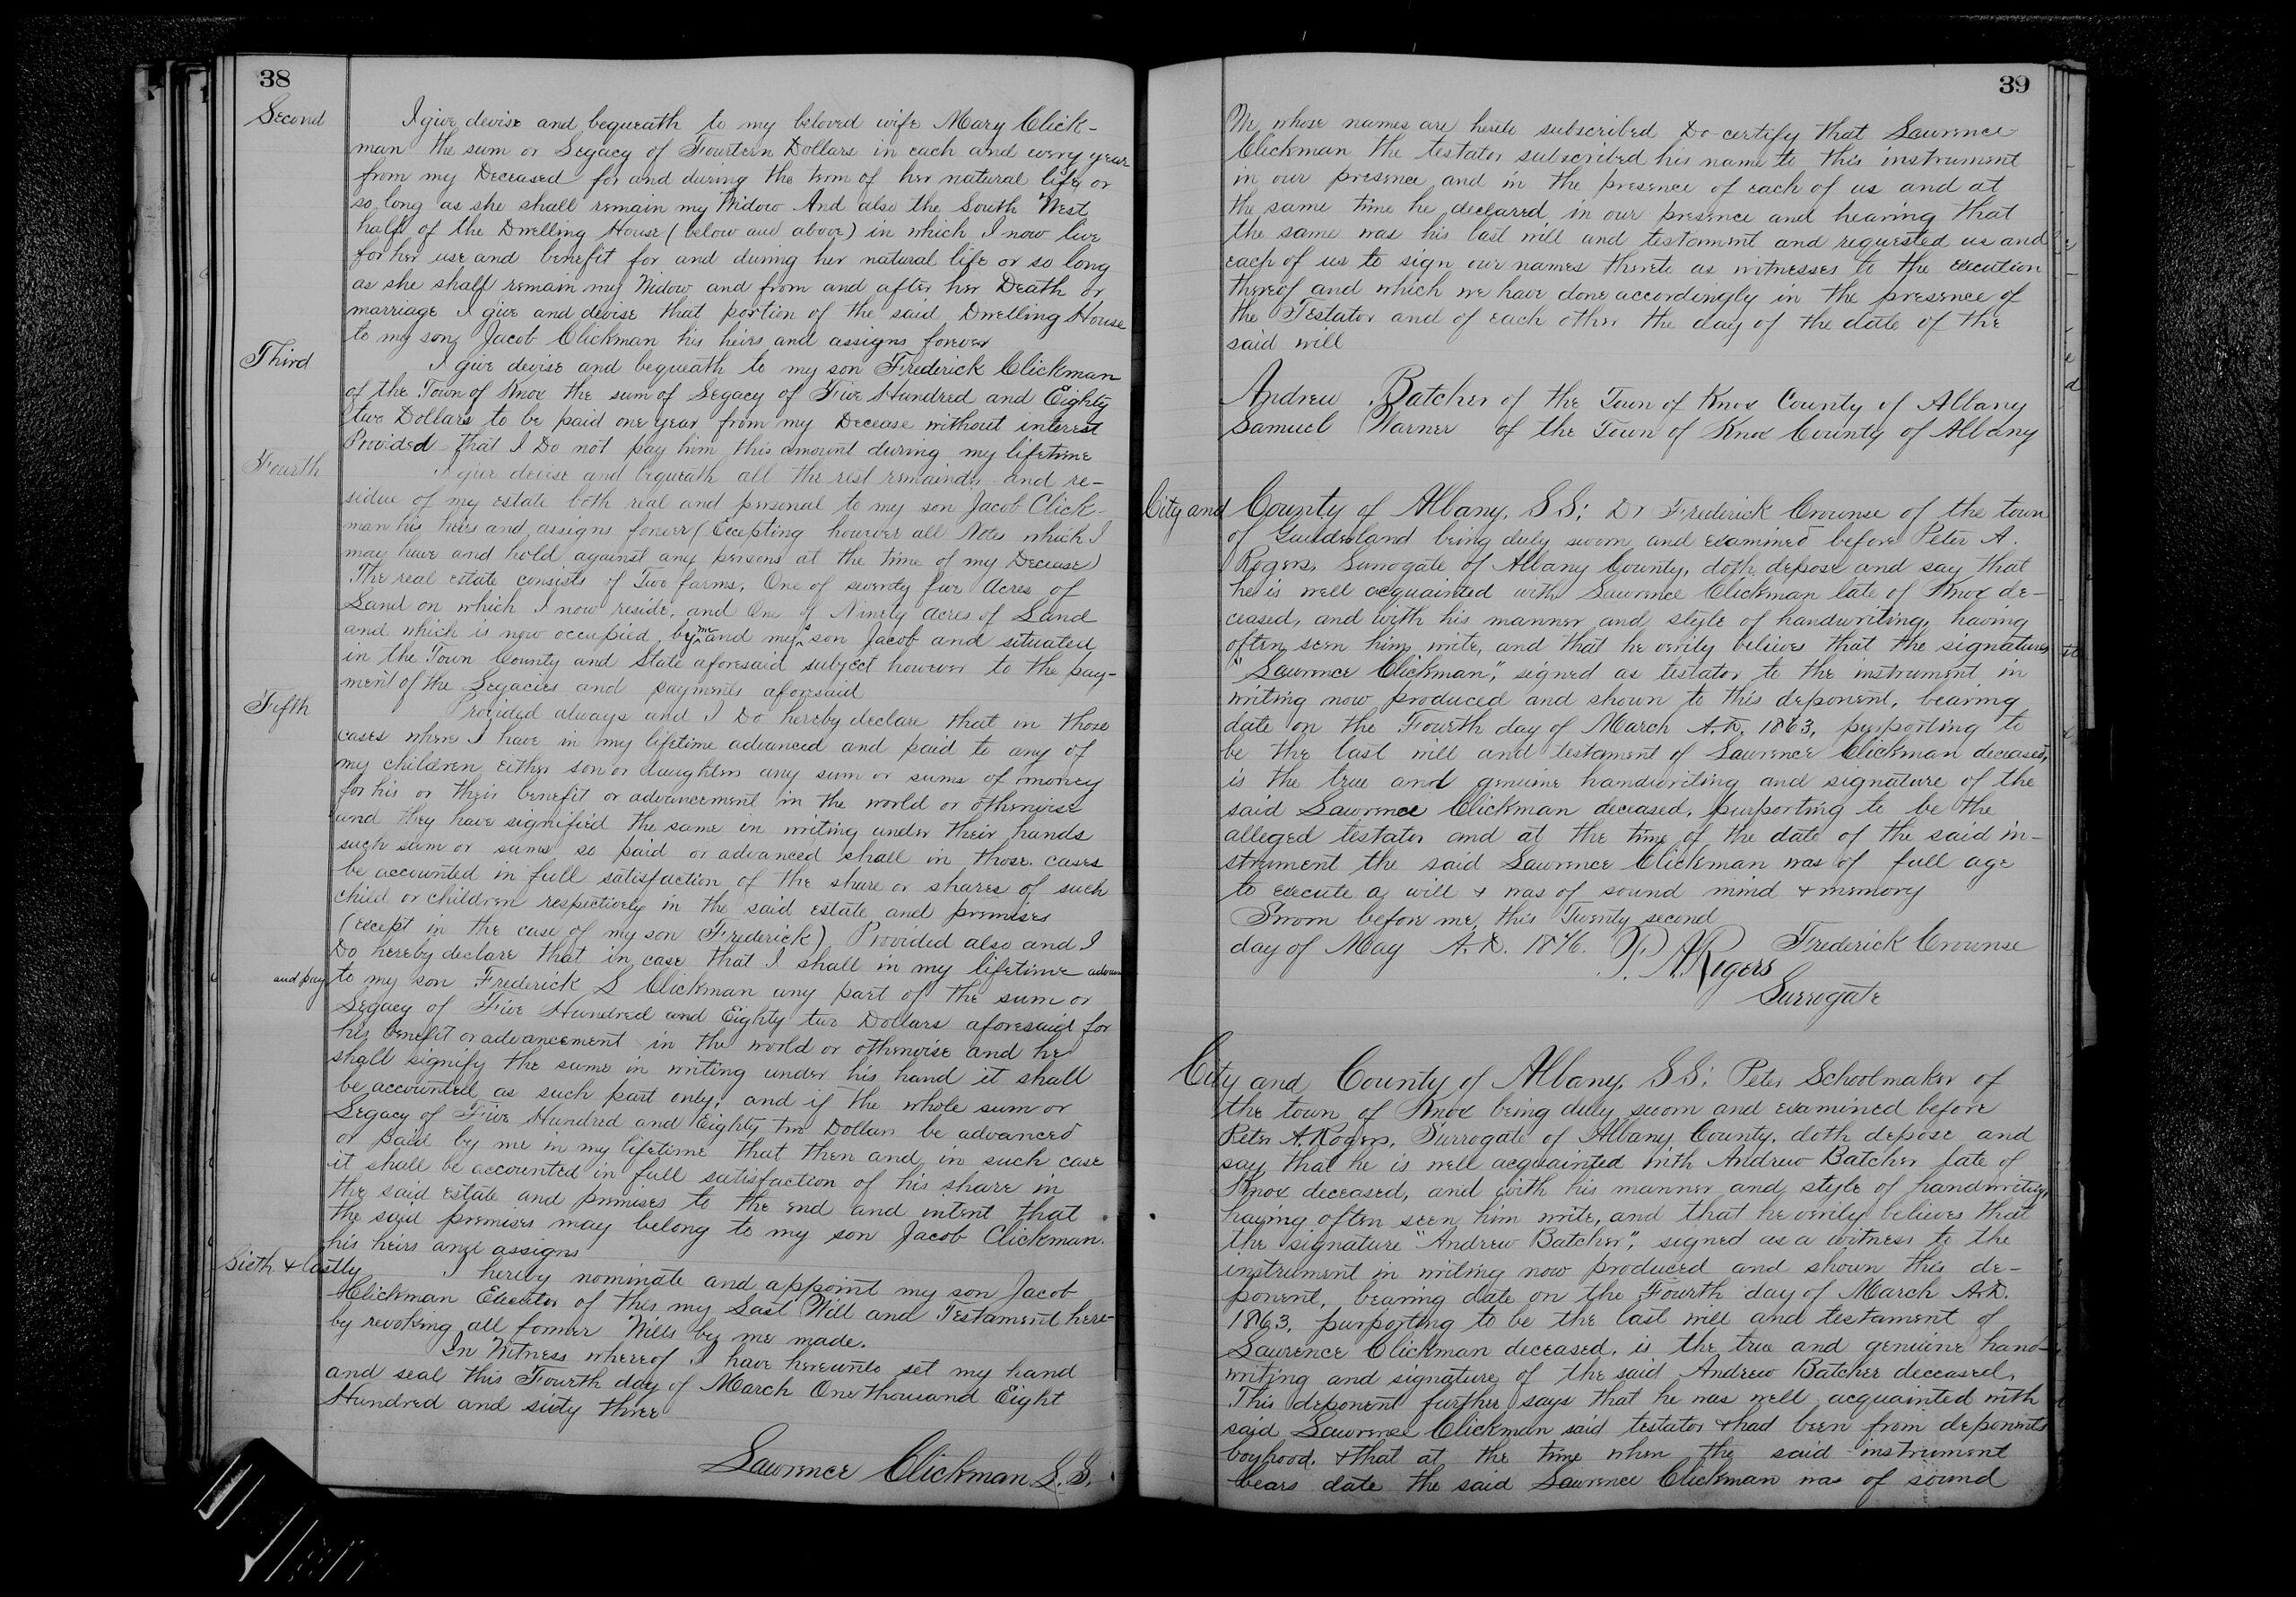 38
Second
I give devise and bequeath to my beloved wife Mary Click-
man the sum or Legacy of Fourteen Dollars in each and every year
from my Deceased for and during the term of her natural life or
so long as she shall remain my Widow And also the South West
half of the Dwelling House (below and above) in which I now live
for her use and benefit for and during her natural life or so long
as she shall remain my Widow and from and after her Death or
marriage I give and devise that portion of the said Dwelling House
to my son Jacob Clickman his heirs and assigns forever
Third
I give devise and bequeath to my son Frederick Clickman
of the Town of Knox the sum of Legacy of Five Hundred and Eighty
two Dollars to be paid one year from my Decease without interest
Provided that I Do not pay him this amount during my lifetime
Fourth
I give devise and bequeath all the rest remainder and re-
sidue of my estate both real and personal to my son Jacob Click-
man his heirs and assigns forever (Excepting however all Notes which I
may have and hold against any persons at the time of my Decease)
The real estate consists of Two farms, One of seventy five Acres of
Land on which I now reside, and One of Ninety acres of Land
and which is now occupied by me and my son Jacob and situated
in the Town County and State aforesaid subject however to the pay-
ment of the Legacies and payments aforesaid
Fifth
Provided always and I Do hereby declare that in those
cases where I have in my lifetime advanced and paid to any of
my children either son or daughters any sum or sums of money
for his or their benefit or advancement in the world or otherwise
and they have signified the same in writing under their hands
such sum or sums so paid or advanced shall in those cases
be accounted in full satisfaction of the share or shares of such
child or children respectively in the said estate and premises
(except in the case of my son Frederick) Provided also and I
Do hereby declare that in case that I shall in my lifetime advance
and pay to my son Frederick L Clickman any part of the sum or
Legacy of Five Hundred and Eighty two Dollars aforesaid for
his benefit or advancement in the world or otherwise and he
shall signify the same in writing under his hand it shall
be accounted as such part only; and if the whole sum or
Legacy of Five Hundred and Eighty two Dollars be advanced
or paid by me in my lifetime that then and in such case
it shall be accounted in full satisfaction of his share in
the said estate and premises to the end and intent that
the said premises may belong to my son Jacob Clickman.
his heirs and assigns
Sixth & lastly
I hereby nominate and appoint my son Jacob
Clickman Executor of this my Last Will and Testament here-
by revoking all former Wills by me made.
In Witness whereof I have hereunto set my hand
and seal this Fourth day of March One thousand Eight
Hundred and sixty three
Lawrence Clickman L.S.
39
We whose names are hereto subscribed Do certify that Lawrence
Clickman the testator subscribed his name to this instrument
in our presence and in the presence of each of us and at
the same time he declared in our presence and hearing that
the same was his last will and testament and requested us and
each of us to sign our names thereto as witnesses to the execution
thereof and which we have done accordingly in the presence of
the Testator and of each other the day of the date of the
said will
Andrew Batcher of the Town of Knox County of Albany
Samuel Warner of the Town of Knox County of Albany
City and County of Albany, SS: Dr Frederick Crounse of the town
of Guilderland being duly sworn and examined before Peter A.
Rogers, Surrogate of Albany County, doth depose and say that
he is well acquainted with Lawrence Clickman late of Knox de-
ceased, and with his manner and style of handwriting, having
often seen him write, and that he verily believes that the signature
"Lawrence Clickman", signed as testator to the instrument in
writing now produced and shown to this deponent, bearing
date on the Fourth day of March A.D. 1863, purporting to
be the last will and testament of Lawrence Clickman deceased,
is the true and genuine handwriting and signature of the
said Lawrence Clickman deceased, purporting to be the
alleged testator and at the time of the date of the said in-
strument the said Lawrence Clickman was of full age
to execute a will & was of sound mind & memory
Sworn before me, this Twenty second
day of May A.D. 1876. Frederick Crounse
P. A. Rogers
Surrogate
City and County of Albany, SS: Peter Schoolmaker of
the town of Knox being duly sworn and examined before
Peter A. Rogers, Surrogate of Albany County, doth depose and
say that he is well acquainted with Andrew Batcher late of
Knox deceased, and with his manner and style of handwriting,
having often seen him write, and that he verily believes that
the signature "Andrew Batcher", signed as a witness to the
instrument in writing now produced and shown this de-
ponent, bearing date on the Fourth day of March A.D.
1863, purporting to be the last will and testament of
Lawrence Clickman deceased, is the true and genuine hand-
writing and signature of the said Andrew Batcher deceased,
This deponent further says that he was well acquainted with
said Lawrence Clickman said testator & had been from deponents
boyhood, & that at the time when the said instrument
bears date the said Lawrence Clickman was of sound